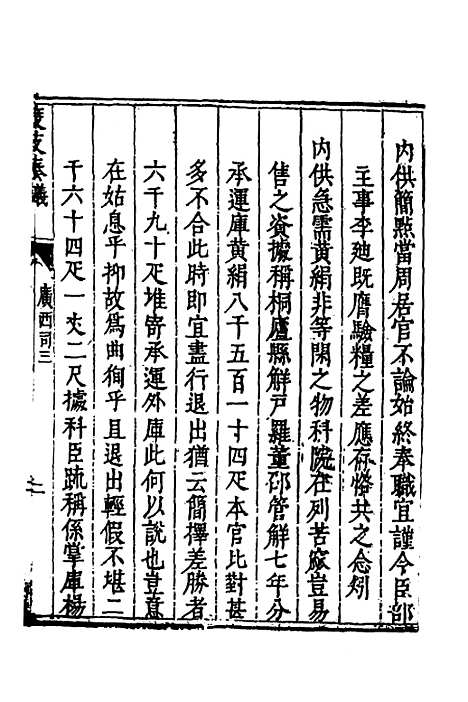 內供簡點當周居官不論始終奉職宜謹今臣部
主事李廸既膺驗糧之差應存恪共之念矧
內供急需黃絹非等閑之物科院在列苦窳豈易
售之資據稱桐廬縣觧戸羅董邵管解七年分
承運庫黃絹八千五百一十四疋本官比對甚
多不合此時即宜盡行退出猶云簡擇差勝者
六千九十疋堆寄承運外庫此何以說也豈意
在姑息乎抑故爲曲徇乎且退出輕假不堪二
千六十四疋一丈二尺據科臣疏稱係掌庫楊
度支奏議
廣西司三